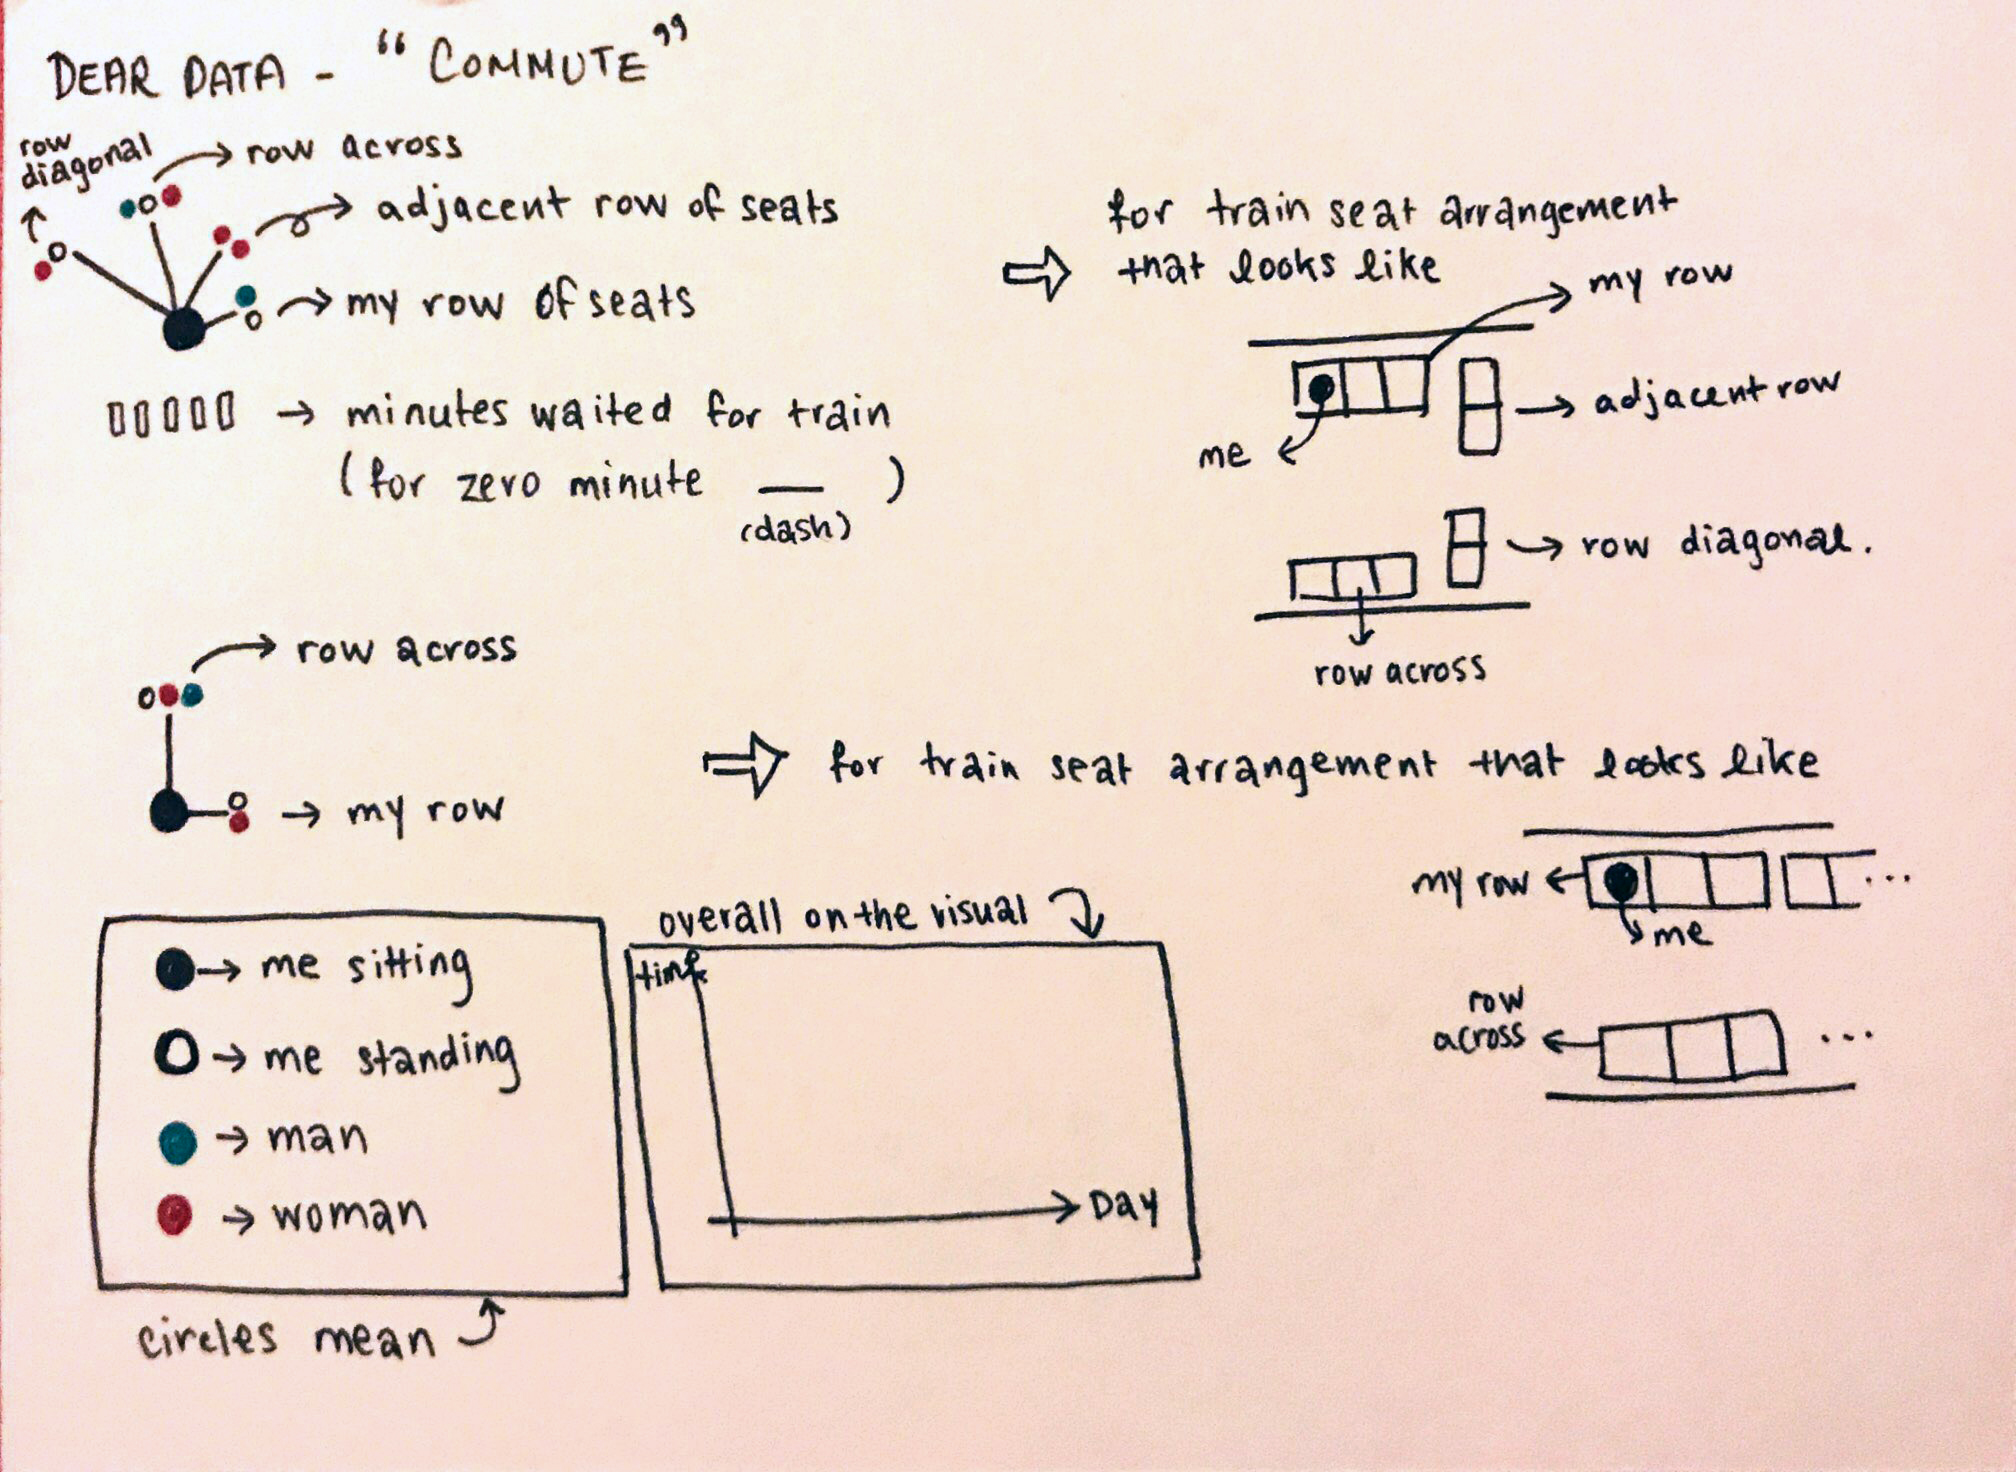 DEAR DATA - "COMMUTE"
row
diagonal
row across
adjacent row of seats
my row of seats
minutes waited for train
(for zero minute __ )
(dash)
for train seat arrangement
that looks like
my row
me
adjacent row
row diagonal.
row across
row across
my row
for train seat arrangement that looks like
my row
me
row
across
me sitting
me standing
man
woman
circles mean
overall on the visual
time
Day